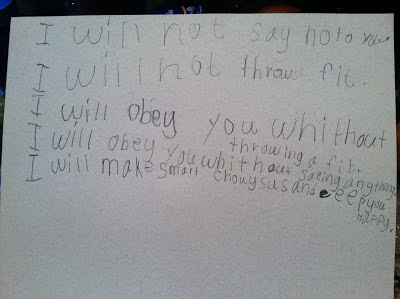 I will not say no to you.
I will not throw fit.
I will obey you whithout
throwing a fit.
I will obey you whithout saeing anything.
I will make smart chouysus and ceep you
happy.